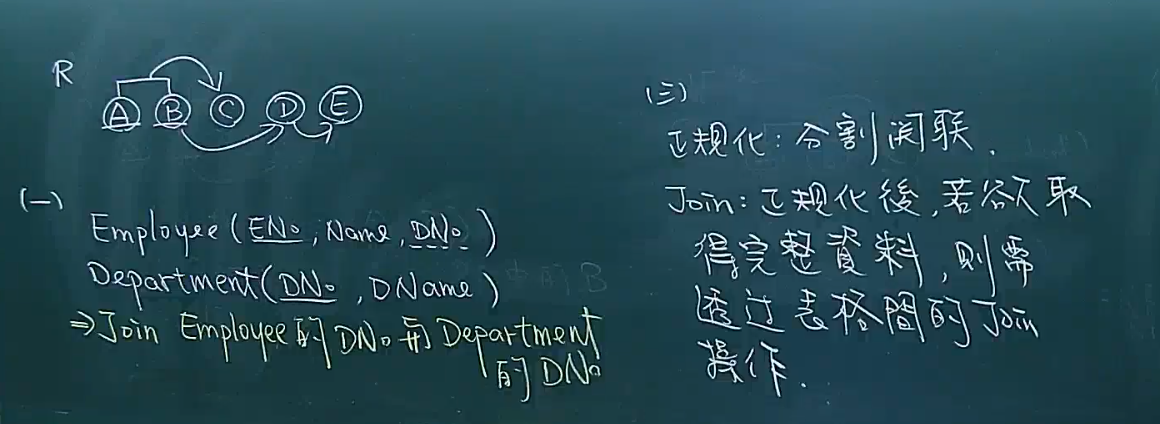 R
A B C D E
(一)
Employee(ENo, Name, DNo)
Department(DNo, DName)
⇒Join Employee的DNo與Department
的DNo
(三)
正規化:分割関联.
Join:正規化後,若欲取
得完整資料,則需
透过表格間的Join
操作.